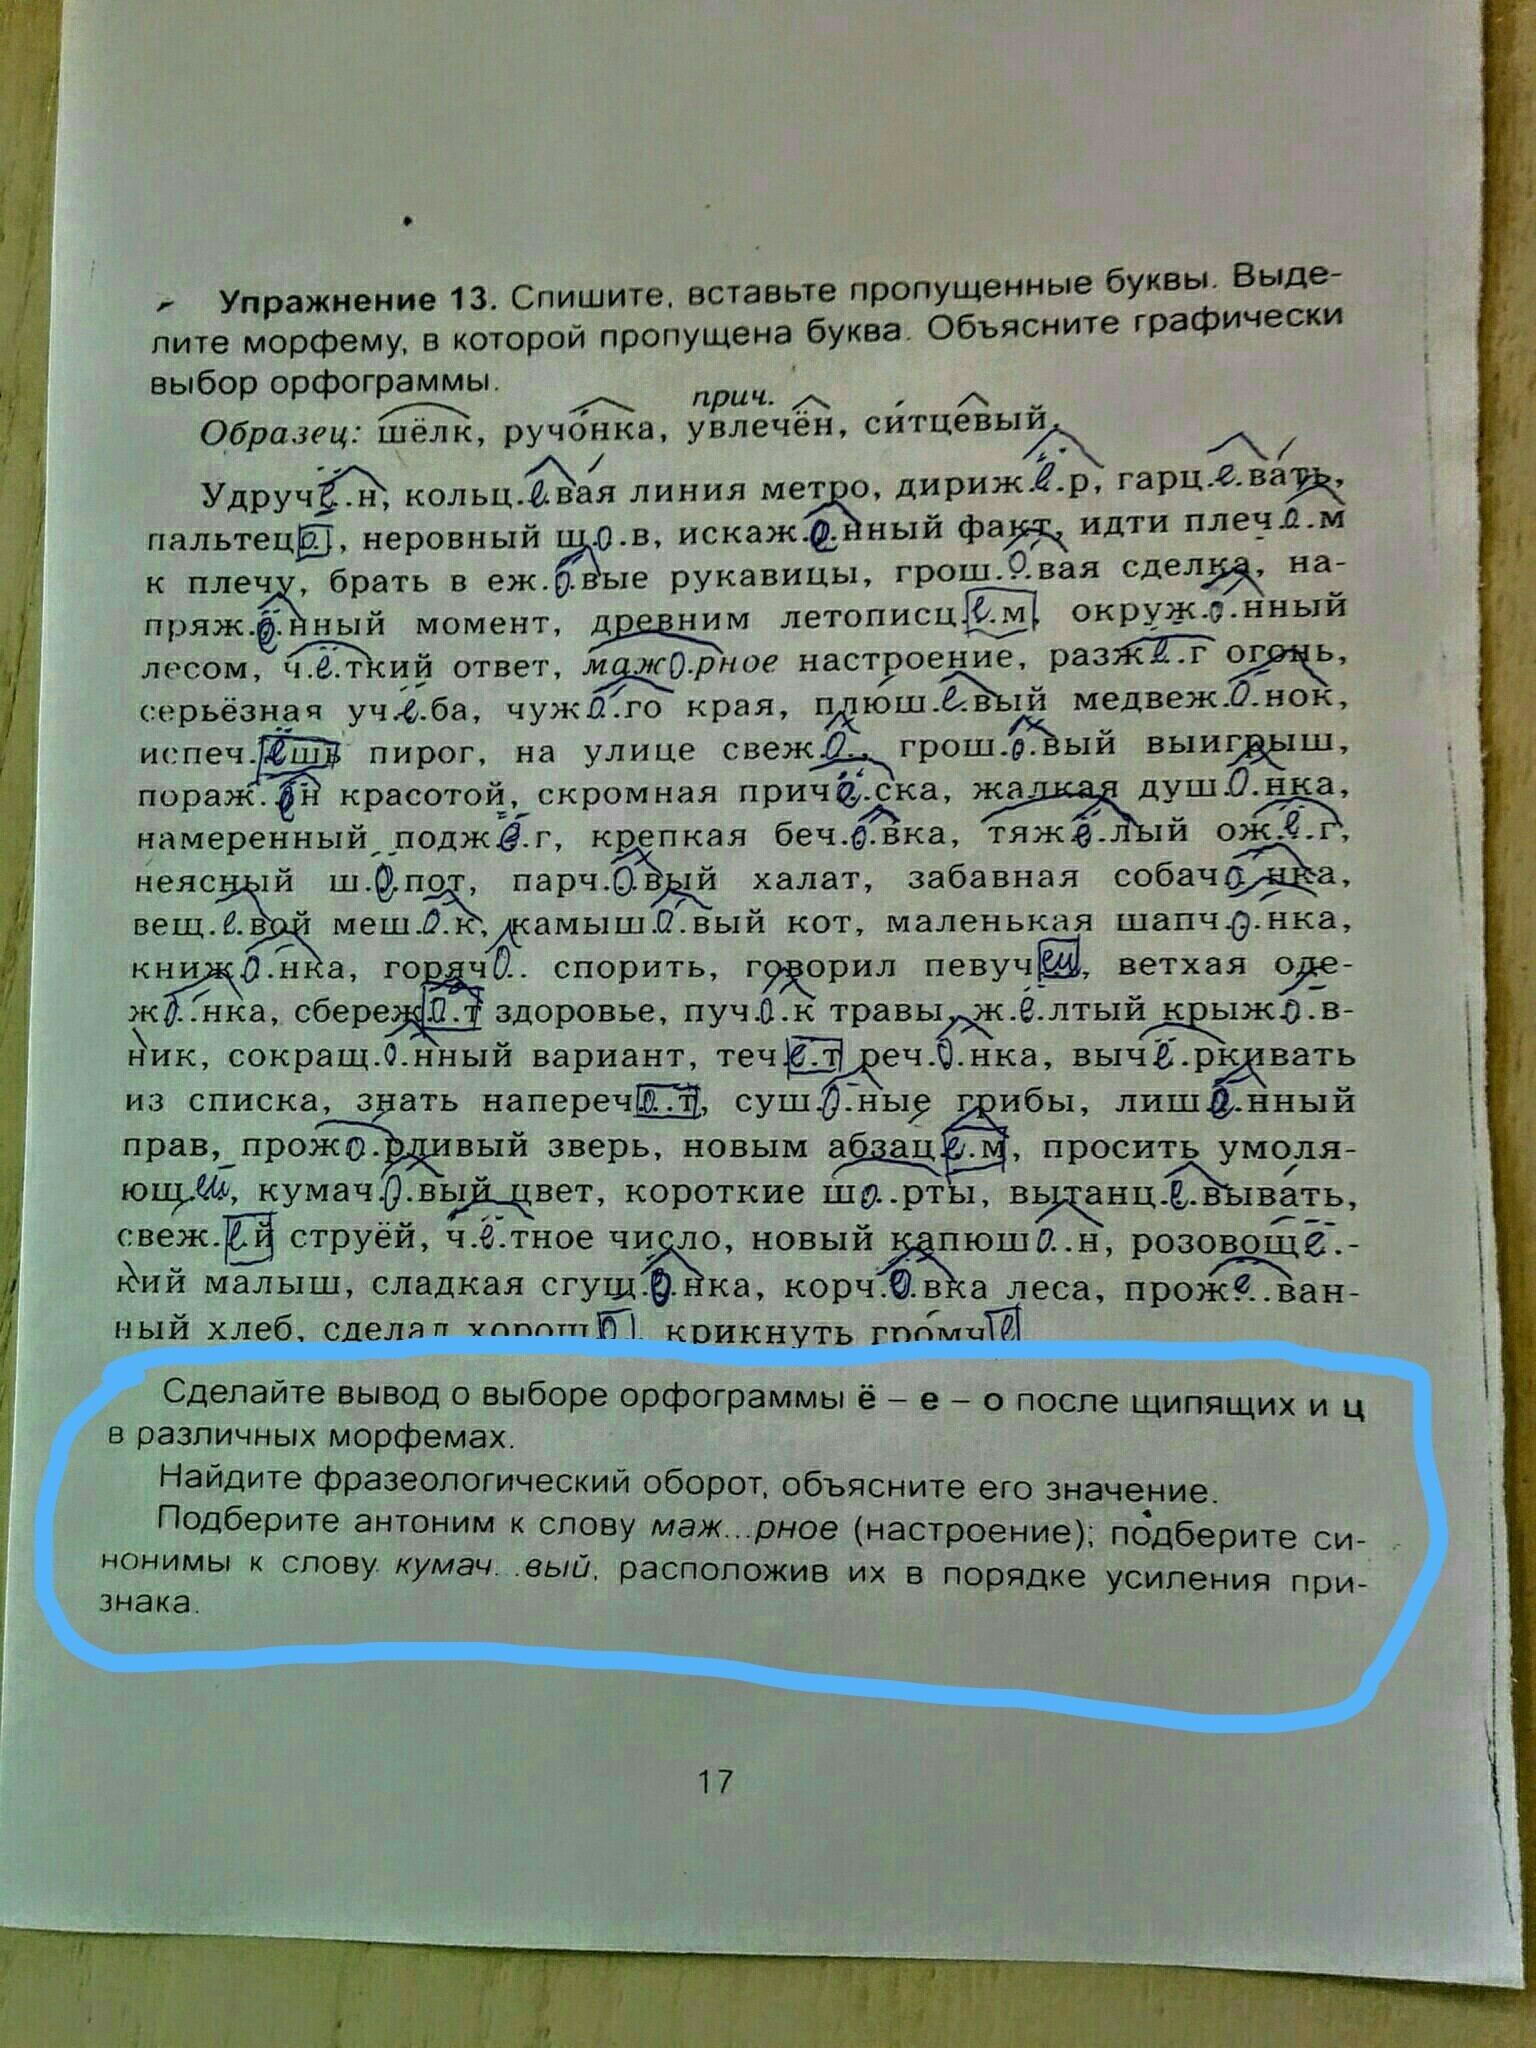 Упражнение 13. Спишите, вставьте пропущенные буквы. Выде-
лите морфему, в которой пропущена буква. Объясните графически
выбор орфограммы.
прич.
Образец: шёлк, ручо́нка, увлечён, си́тцевый.
Удручё..н, кольц.е.вая линия метро, дириж.ё.р, гарц.е.вать,
пальтец.о., неровный ш.о.в, искаж.ё.нный факт, идти плеч.о.м
к плечу, брать в еж.о.вые рукавицы, грош.о.вая сделка, на-
пряж.ё.нный момент, древним летописц.е.м, окруж.ё.нный
лесом, ч.ё.ткий ответ, мажо.рное настроение, разжё.г огонь,
серьёзная уч.ё.ба, чужо.го края, плюш.е.вый медвеж.о.нок,
испеч.ёшь пирог, на улице свеж.о.., грош.о.вый выигрыш,
пораж.ён красотой, скромная причё.ска, жалкая душ.о.нка,
намеренный поджё.г, крепкая беч.о.вка, тяжё.лый ож.ё.г,
неясный ш.о.пот, парч.о.вый халат, забавная собачо.нка,
вещ.е.вой меш.о.к, камыш.о.вый кот, маленькая шапч.о.нка,
книжо.нка, горячо.. спорить, говорил певучей, ветхая оде-
жо..нка, сбереж.ё.т здоровье, пуч.о.к травы, ж.ё.лтый крыжо.в-
ник, сокращ.ё.нный вариант, теч.ё.т реч.о.нка, вычё.ркивать
из списка, знать напереч.ё.т, суш.ё.ные грибы, лиш.ё.нный
прав, прожо.рливый зверь, новым абзац.е.м, просить умоля-
ющ.ей, кумач.о.вый цвет, короткие шо..рты, вытанц.е.вывать,
свеж.е.й струёй, ч.ё.тное число, новый капюшо..н, розовощё.-
кий малыш, сладкая сгущ.ё.нка, корч.ё.вка леса, прожё..ван-
ный хлеб, сделал хорошо., крикнуть громче
Сделайте вывод о выборе орфограммы ё – е – о после щипящих и ц
в различных морфемах.
Найдите фразеологический оборот, объясните его значение.
Подберите антоним к слову маж...рное (настроение); подберите си-
нонимы к слову кумач...вый, расположив их в порядке усиления при-
знака.
17